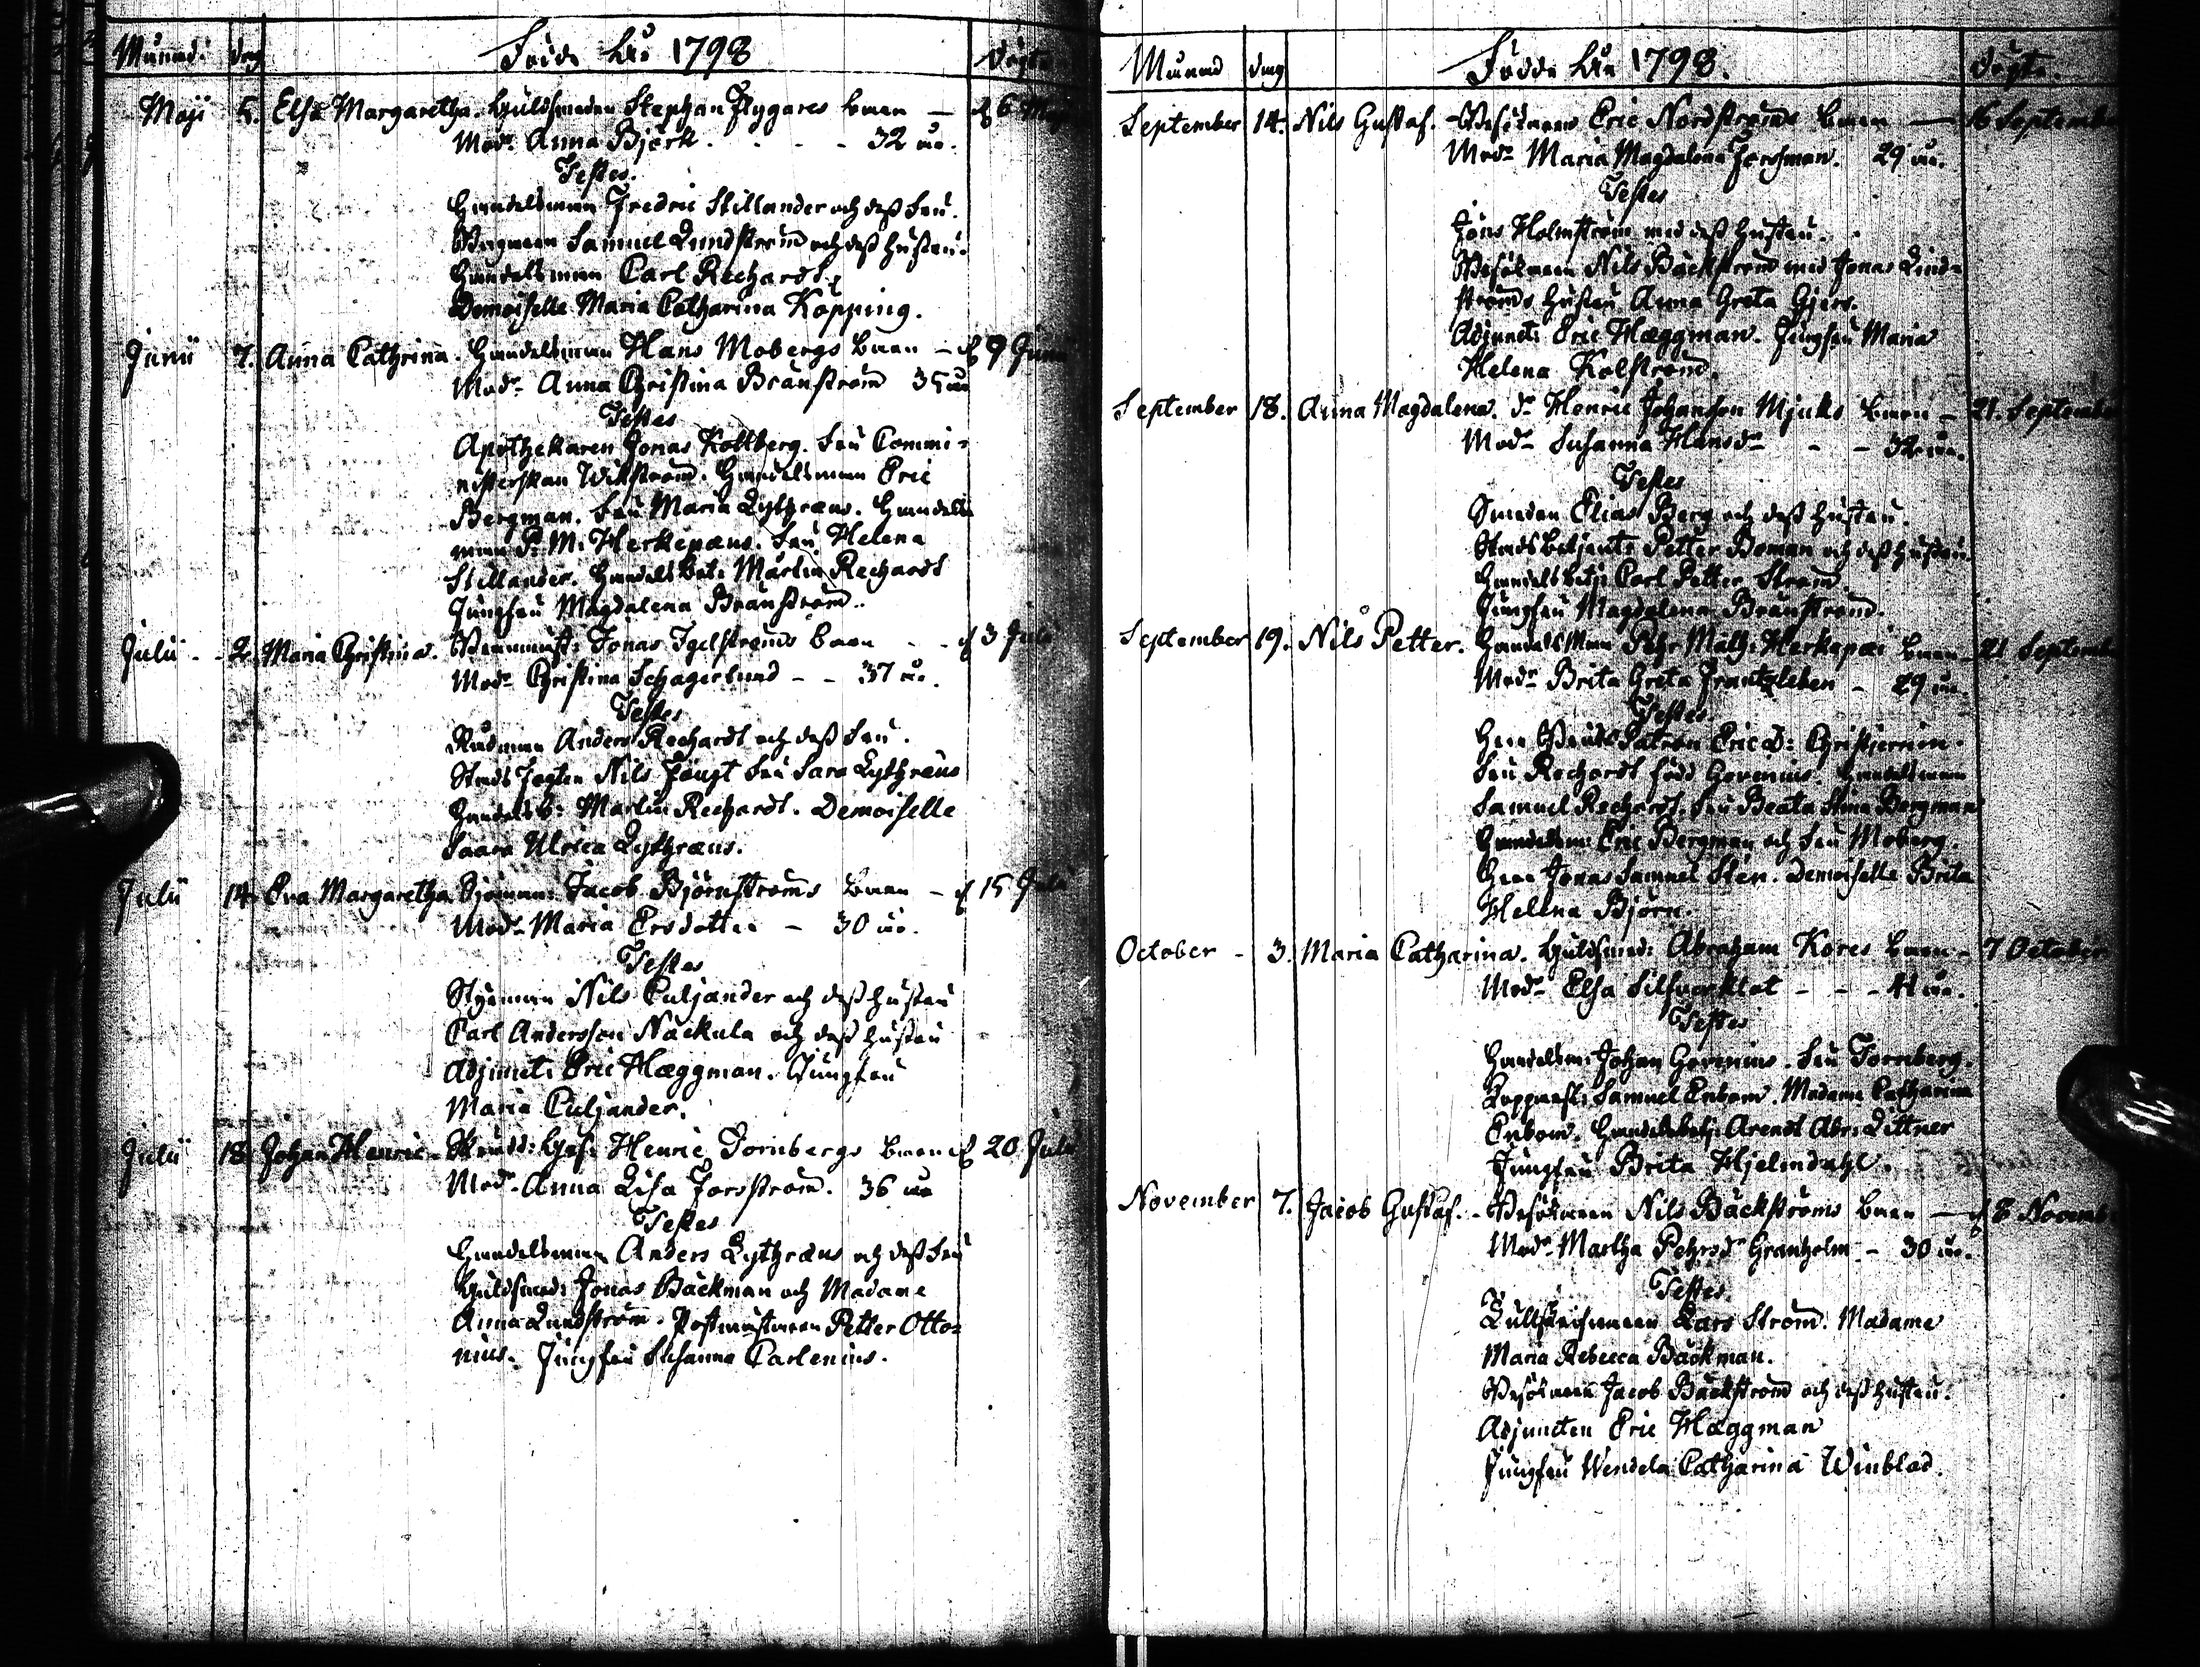 Månad: dag Födde åhr 1798 döpte
Maji 5. Elsa Margaretha. Guldsmeden Stephan Flygares barn — d 6 Maji
Modr Anna Björk. - - - 32 åhr.
Testes.
Handelsman Fredric Stillander och dess Fru.
Samuel Lundström och dess hustru.
Handelsman Carl Rechardt,
Demoiselle Maria Catharina Kopping.
Junii 7. Anna Cathrina. Handelsman Hans Mobergs barn — d 9 Junii
Modr Anna Christina Brånström 35 åhr
Testes
Apothekaren Jonas Kollberg. Fru Commi-
nisterskan Wikström. Handelsman Eric
Bergman. Fru Maria Lythræus. Handels
man P. M. Herkepæus. Fru Helena
Stillander. Handelsbet: Martin Rechardt
Jungfru Magdalena Brånström.
Julii - - 2. Maria Christina. Jonas Igelströms barn - - d 3 Julii
Modr Christina Schagerlund - - 37 åhr.
Testes
Rådman Anders Rechardt och dess Fru.
Stads Fogten Nils Fougt Fru Sara Lythræus
Handelsb: Martin Rechardt. Demoiselle
Saara Ulrica Lythræus.
Julii 14. Eva Margaretha Sjöman: Jacob Björnströms barn — d 15 Julii
Modr Maria Ersdotter — 30 åhr.
Testes
Styrman Nils Culjander och dess hustru
Carl Andersson Näckula och dess hustru
Adjunct: Eric Hæggman. Jungfru
Maria Culjander.
Julii 18. Johan Henric. Henric Tornbergs barn d 20 Julii
Modr Anna Lisa Forsström. 36 åhr
Testes
Handelsman Anders Lythræus och dess Fru
Guldsmed: Jonas Bäckman och Madame
Anna Lundström. Postmästaren Petter Otto-
nius. Jungfru Susanna Carlenius.
Månad dag Födde åhr 1798. döpte.
September 14. Nils Gustaf. Besökaren Eric Nordströms barn — 16 September
Modr Maria Magdalena Forsman. 29 åhr.
Testes
Jöns Holmström med dess hustru.
Besökaren Nils Bäckström med Jonas Lind-
ströms hustru Anna Greta Gjers.
Adjunct: Eric Hæggman. Jungfru Maria
Helena Kolström.
September 18. Anna Magdalena. dr Henric Johansson Mjuks barn — 21. September
Modr Susanna Hansdr - - 32 åhr.
Testes
Smeden Elias Berg och dess hustru.
Stadsbetjent: Petter Boman och dess hustru.
Handelsbetj: Carl Petter Ström.
Jungfru Magdalena Brånström.
September 19. Nils Petter. Handelsman Pehr Math: Herkepæi barn — 21 September
Modr Brita Greta Frantzleben — 29 åhr.
Testes.
Herr Bruks Patron Eric D: Christjernin.
Fru Rechardt född Govenius. Handelsman
Samuel Rechardt. Fru Beata Stina Bergman
Handelsm: Eric Bergman och Fru Moberg.
Herr Jonas Samuel Sten. Demoiselle Brita
Helena Björn.
October - 3. Maria Catharina. Guldsmed: Abraham Kores barn — 7 October
Modr Elsa Silfverklot - - - 41 åhr.
Testes
Handelsm: Johan Govenius. Fru Tornberg.
Samuel Enbom. Madame Catharina
Enbom. Handelsbetj: Arendt Abr: Littner
Jungfru Brita Hjelmdahl.
November 7. Jacob Gustaf. - Besökaren Nils Bäckströms barn — d 8 Novemb
Modr Martha Pehrsdr Granholm — 30 åhr.
Testes.
Lars Ström. Madame
Maria Rebecca Bäckman.
Besökaren Jacob Bäckström och dess hustru.
Adjuncten Eric Hæggman
Jungfru Wendela Catharina Winblad.